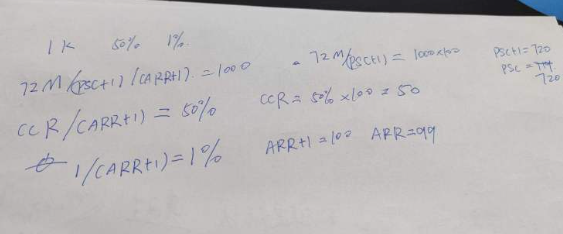 1K 50% 1%
72M/(PSC+1)/(ARR+1) = 1000
72M/(PSC+1) = 1000×100
PSC+1=720
PSC = 719
720
CCR/(ARR+1) = 50%
CCR = 50% ×100 = 50
1/(ARR+1) = 1%
ARR+1=100 ARR=99